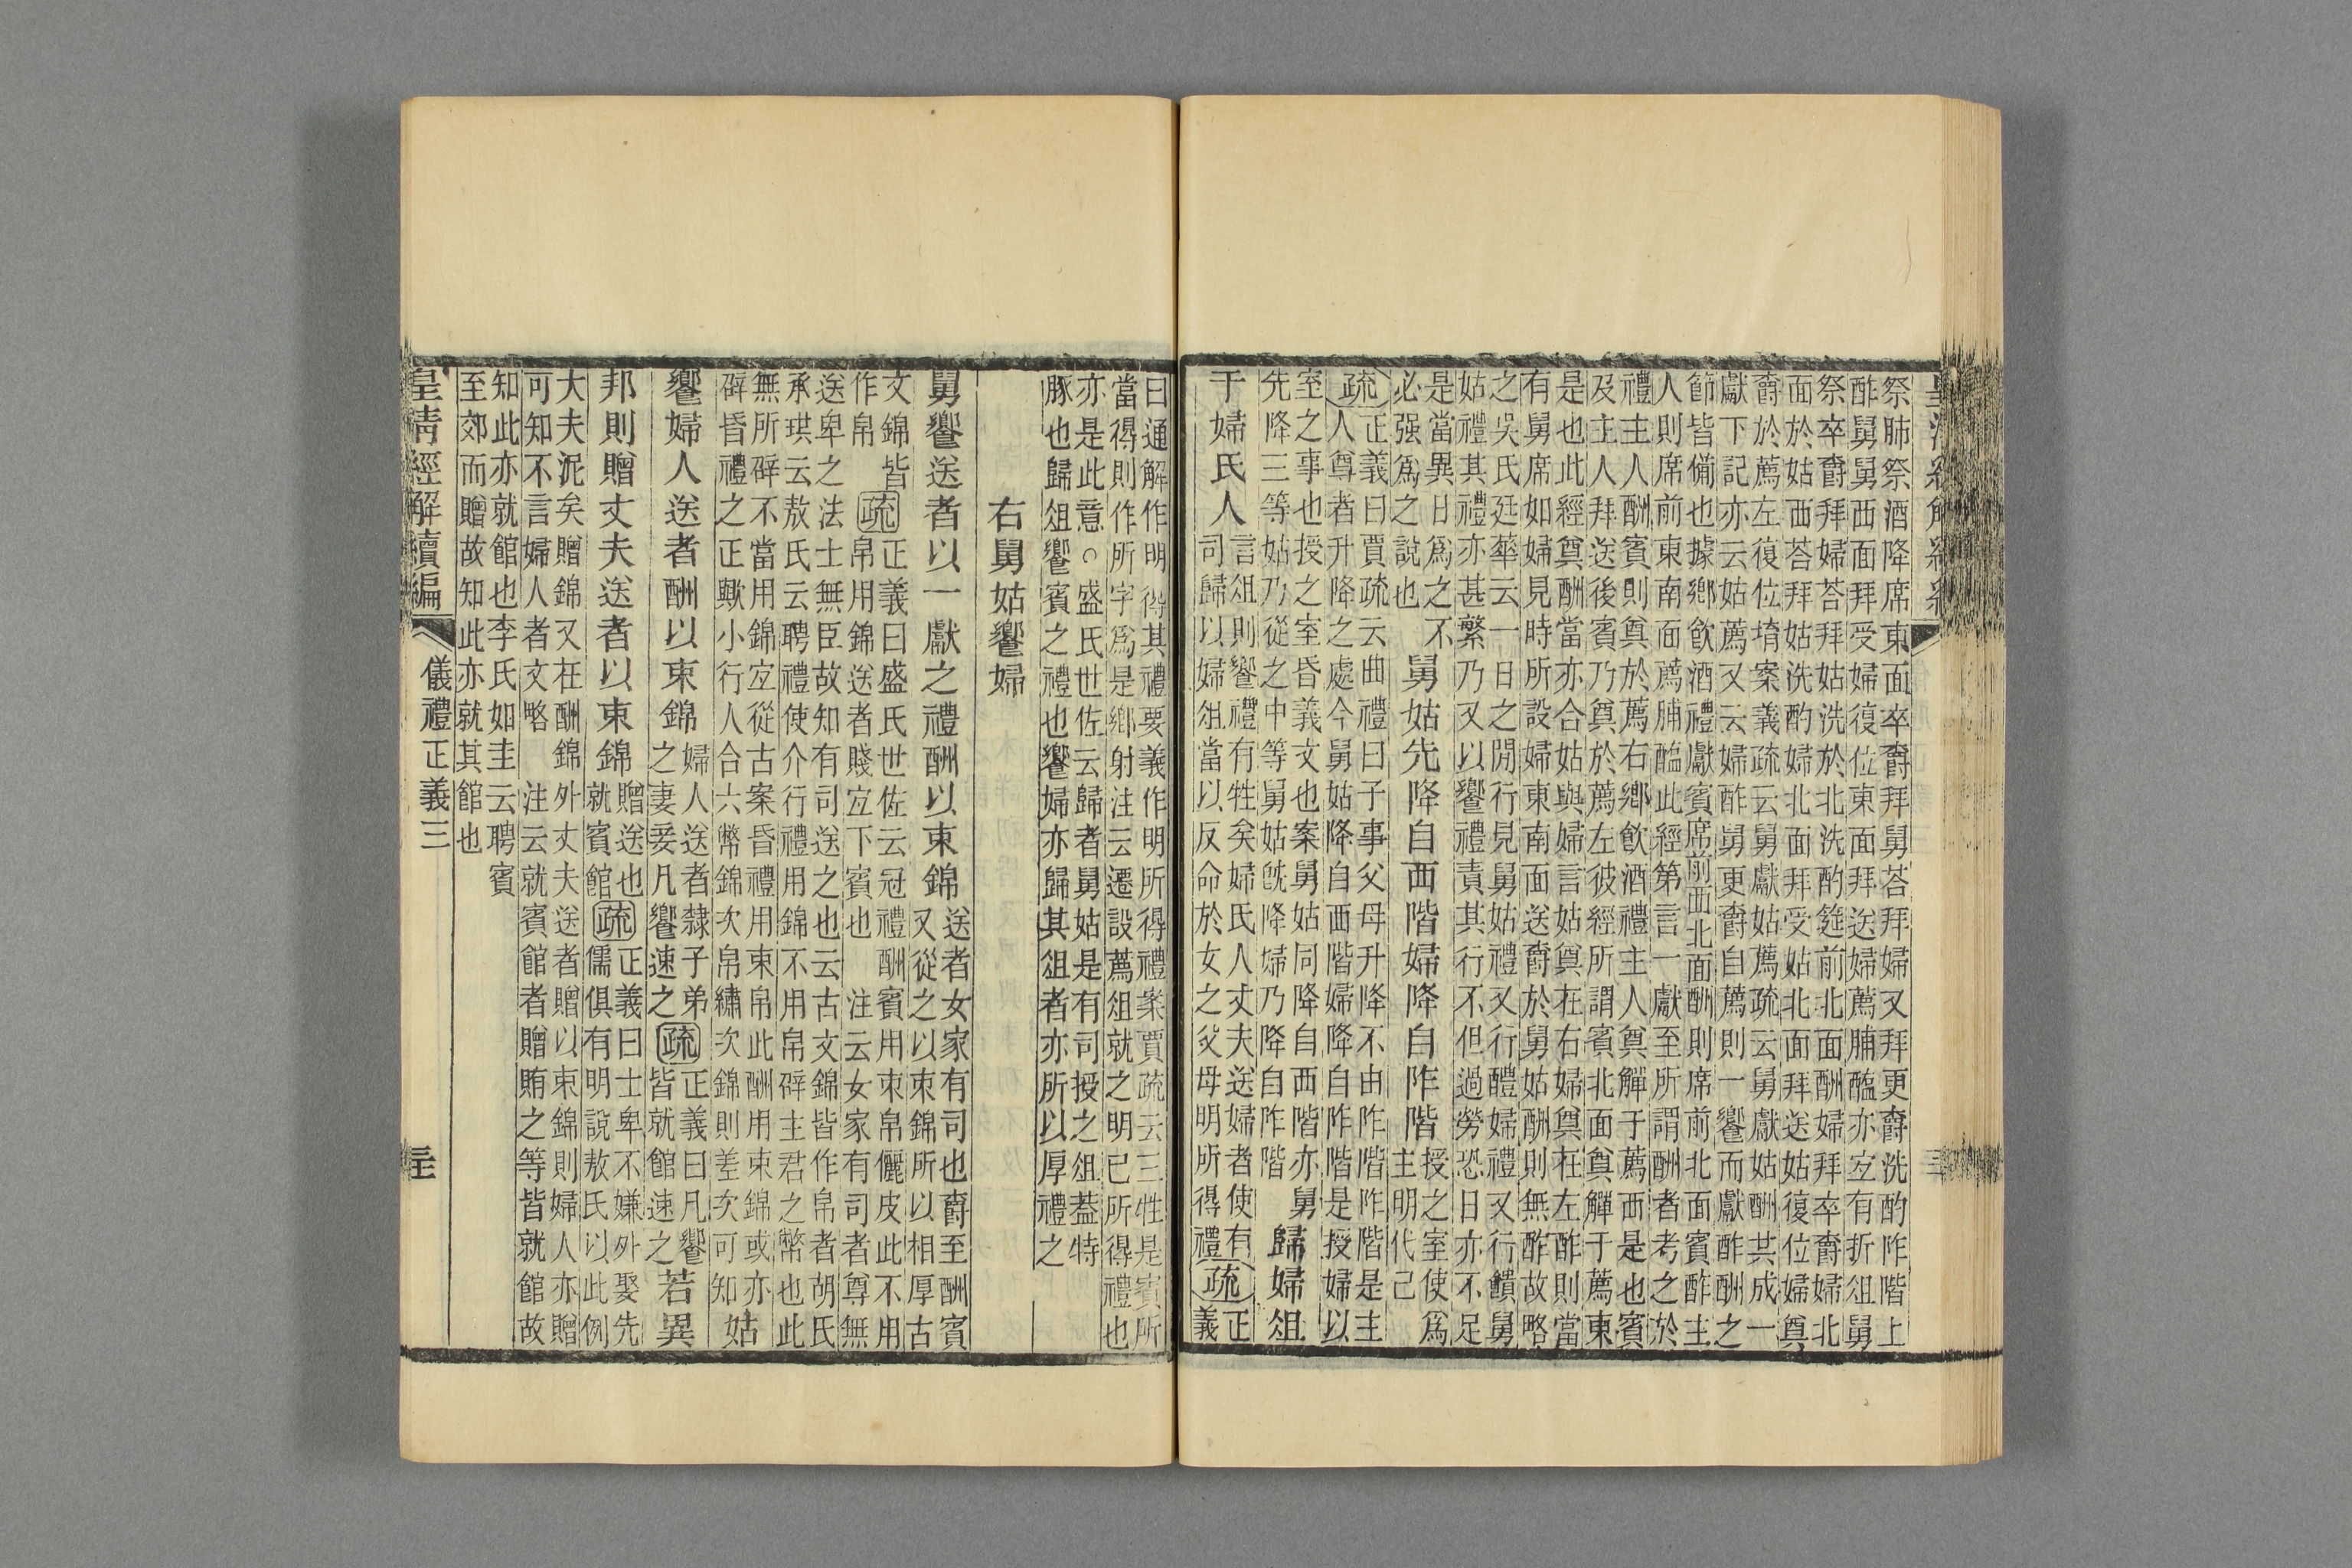 祭肺祭酒降席東面卒爵拜舅荅拜婦又拜更爵洗酌阼階上
酢舅舅西面拜受婦復位東面拜送婦薦脯醢亦宐有折俎舅
祭卒爵拜婦荅拜姑洗於北洗酌筵前北面酬婦拜卒爵婦北
面於姑西荅拜姑洗酌婦北面拜受姑北面拜送姑復位婦奠
爵於薦左復位堉案義疏云舅獻姑薦疏云舅獻姑酬其成一
獻下記亦云姑薦又云婦酢舅更爵自薦則一饗而獻酢酬之
節皆備也據鄉飮酒禮獻賓席前西北面酬則席前北面賓酢主
人則席前東南面薦脯醢此經第言一獻至所謂酬者考之於
禮主人酬賓則奠於薦右鄉飮酒禮主人奠觶于薦西是也賓
及主人拜送後賓乃奠於薦左彼經所謂賓北面奠觶于薦東
是也此經奠酬當亦合姑與婦言姑奠在右婦奠在左酢則當
有舅席如婦見時所設婦東南面送爵於舅姑酬則無酢故略
之吳氏廷華云一日之閒行見舅姑禮又行醴婦禮又行饋舅
姑禮其禮亦甚繁乃又以饗禮責其行不但過勞恐日亦不足
是當異日爲之不
必强爲之說也
舅姑先降自西階婦降自阼階
授之室使爲
主明代己
疏
正義曰賈疏云曲禮曰子事父母升降不由阼階阼階是主
人尊者升降之處今舅姑降自西階婦降自阼階是授婦以
室之事也授之室昏義文也案舅姑同降自西階亦舅
先降三等姑乃從之中等舅姑旣降婦乃降自阼階
歸婦俎
于婦氏人
言俎則饗禮有牲矣婦氏人丈夫送婦者使有
司歸以婦俎當以反命於女之父母明所得禮
疏
正
義
曰通解作明得其禮要義作明所得禮案賈疏云三牲是賓所
當得則作所字爲是鄉射注云遷設薦俎就之明已所得禮也
亦是此意○盛氏世佐云歸者舅姑是有司授之俎蓋特
豚也歸俎饗賓之禮也饗婦亦歸其俎者亦所以厚禮之
右舅姑饗婦
舅饗送者以一獻之禮酬以束錦
送者女家有司也爵至酬賓
又從之以束錦所以相厚古
文錦皆
作帛
疏
正義曰盛氏世佐云冠禮酬賓用束帛儷皮此不用
帛用錦送者賤宐下賓也　注云女家有司者尊無
送卑之法士無臣故知有司送之也云古文錦皆作帛者胡氏
承珙云敖氏云聘禮使介行禮用錦不用帛辟主君之幣也此
無所辟不當用錦宐從古案昏禮用束帛此酬用束錦或亦
辟昏禮之正歟小行人合六幣錦次帛繡次錦則差次可知
姑
饗婦人送者酬以束錦
婦人送者隸子弟
之妻妾凡饗速之
疏
正義曰凡饗
皆就館速之
若異
邦則贈丈夫送者以束錦
贈送也
就賓館
疏
正義曰士卑不嫌外娶先
儒俱有明說敖氏以此例
大夫泥矣贈錦又在酬錦外丈夫送者贈以束錦則婦人亦贈
可知不言婦人者文略　注云就賓館者贈賄之等皆就館故
知此亦就館也李氏如圭云聘賓
至郊而贈故知此亦就其館也
皇清經解續編
儀禮正義三